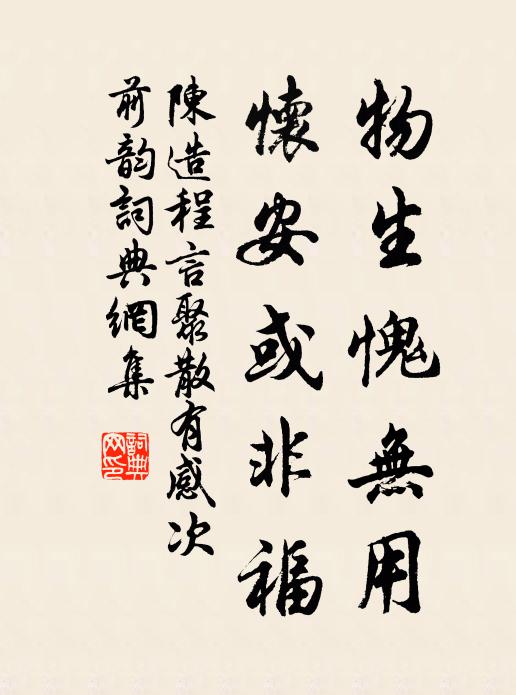 物生愧無用
懷安或非福
陳造程言聚散有感次
前韵詞典網集
詞典網印